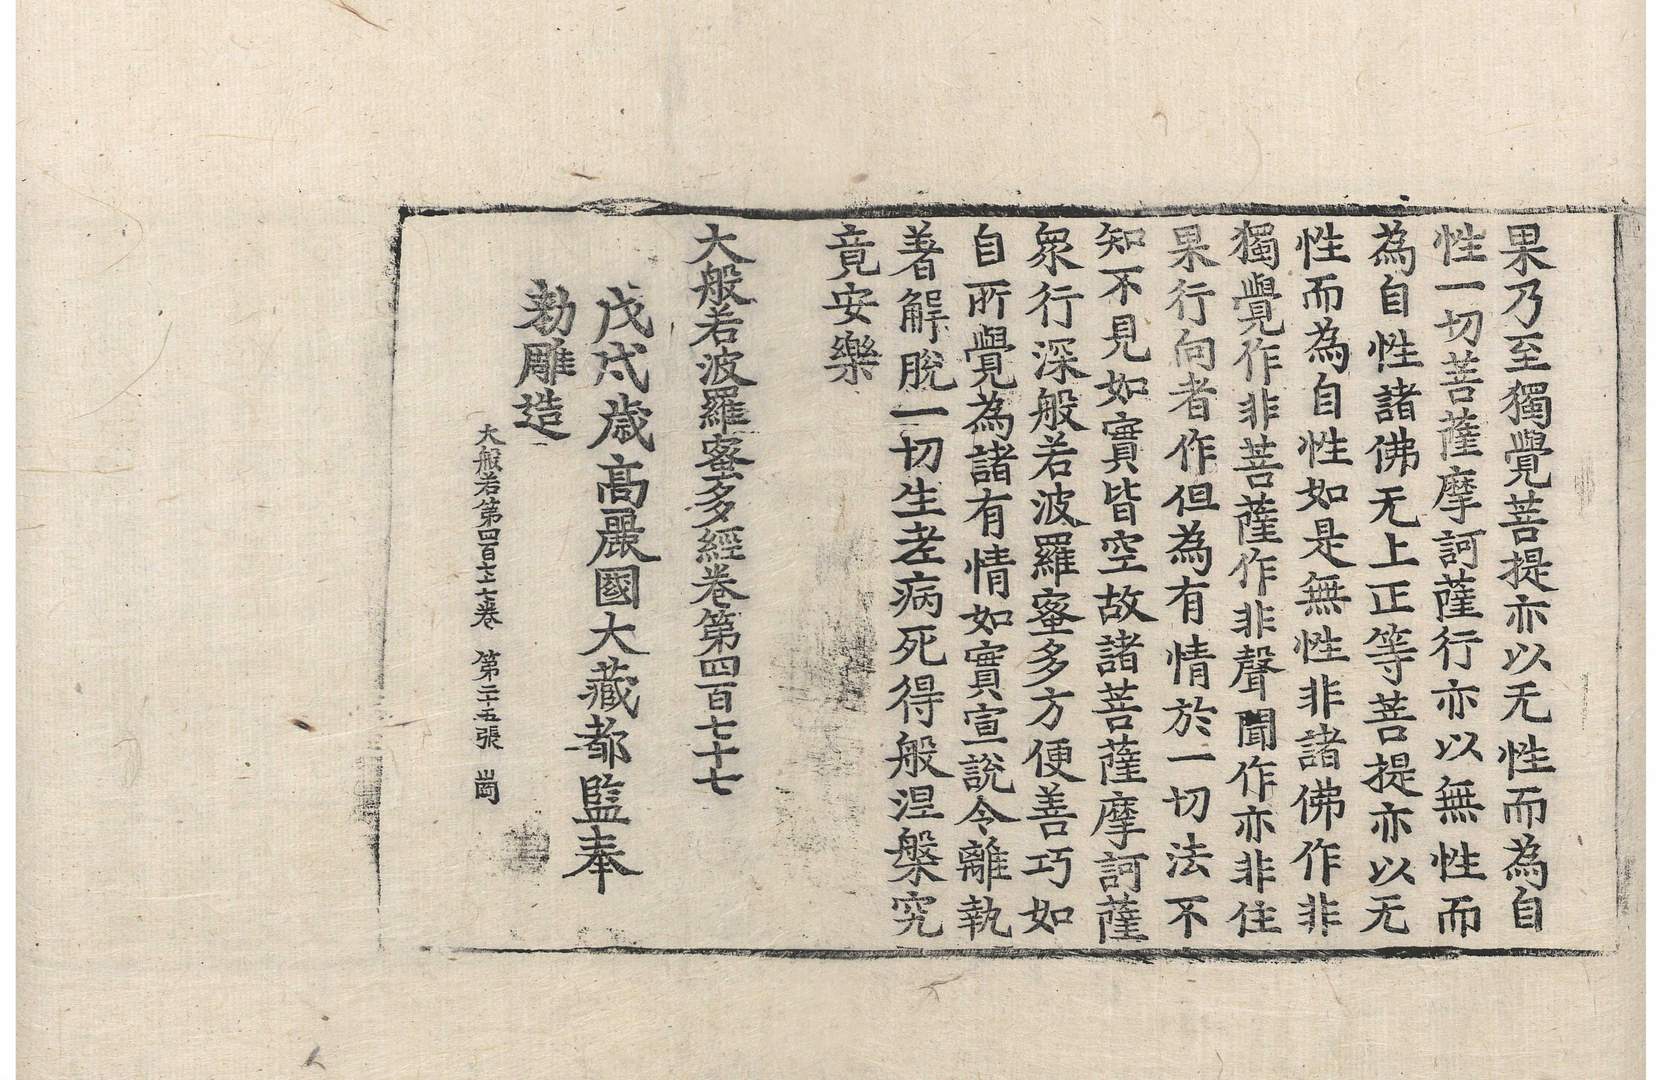 果乃至獨覺菩提亦以无性而為自
性一切菩薩摩訶薩行亦以無性而
為自性諸佛无上正等菩提亦以无
性而為自性如是無性非諸佛作非
獨覺作非菩薩作非聲聞作亦非住
果行向者作但為有情於一切法不
知不見如實皆空故諸菩薩摩訶薩
衆行深般若波羅蜜多方便善巧如
自所覺為諸有情如實宣說令離執
著解脫一切生老病死得般涅槃究
竟安樂
大般若波羅蜜多經卷第四百七十七
戊戌歲高麗國大藏都監奉
勅雕造
大般若第四百七十七卷 第二十五張 崗